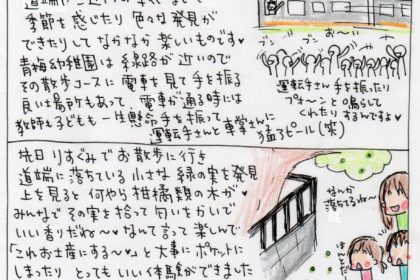 季節を感じたり 色々な発見が
できたりして なかなか 楽しいものです♥
青梅幼稚園は 線路が 近いので
その散歩コースに 電車を見て 手を振る
良い場所もあって、電車が通る時には
教師も子どもも 一生懸命 手を振って
運転手さんと 車掌さんに
猛アピール(笑)
お〜い
ブン ブン
運転手さん 手を振ったり
プォーンと 鳴らして
くれたり するんですよ♥
先日 りすぐみで お散歩に行き
道端に 落ちている 小さな 緑の実を 発見
上を見ると 何やら 柑橘類の木が♥
みんなで その実を 拾って 匂いを かいで
いい香りだね〜♥ なんて 言って 楽しんで
「これお土産にする〜♥」と 大事に ポケットに
しまったり とっても いい体験が できました
なんか
落ちてるね〜
ほんと